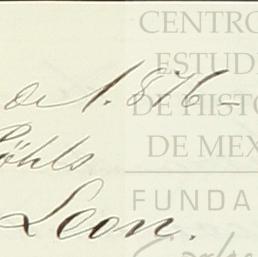 CENTRO
ESTUD
de 1.876-
DE HISTO
DE MEX
Leon.
FUNDA